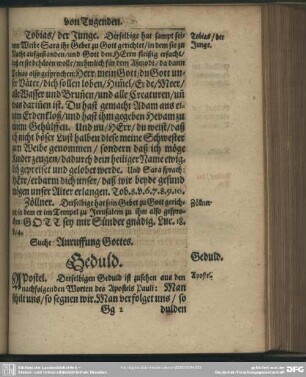 von Tugenden.
Tobias/ der Junge. Derselbige hat sampt sei-
nem Weibe Sara ihr Gebet zu Gott gerichtet/ in dem sie zu
Nacht auffgestanden/ und Gott den HErrn fleißig ersucht/
Tobias also gesprochen: Herr/ mein Gott/ du Gott un-
ser Väter/ dich sollen loben/ Himel/ Erde/ Meer/
alle Wasser und Brunen/ und alle Creaturen/ und was
darinen ist. Du hast gemacht Adam aus ei-
nem Erdenkloß/ und hast ihm gegeben Hevam zu
einem Gehülffen. Und nu/ HErr/ du weist/ daß
ich nicht böser Lust halben diese meine Schwester
zum Weibe genommen/ sondern daß ich möge
Kinder zeugen/ dadurch dein heiliger Name ewig-
lich gepreiset und gelobet werde. Und Sara sprach:
HErr/ erbarm dich unser/ daß wir beyde gesund
mögen unser Alter erlangen. Tob. 8. v. 6. 7. 8. 9. 10.
Zöllner. Derselbige hat sein Gebet zu Gott gerich-
tet/ in dem er im Tempel zu Jerusalem zu ihm also gespro-
chen: GOTT sey mir Sünder gnädig. Luc. 18.
v. 14.
Suche: Anruffung Gottes.
Geduld.
Apostel. Derselbigen Geduld ist zusehen aus den
nachfolgenden Worten des Apostels Pauli: Man
schilt uns/ so segnen wir. Man verfolget uns/ so
Gg 2 dulden
Tobias/ der
Junge.
Zöllner.
Geduld.
Apostel.